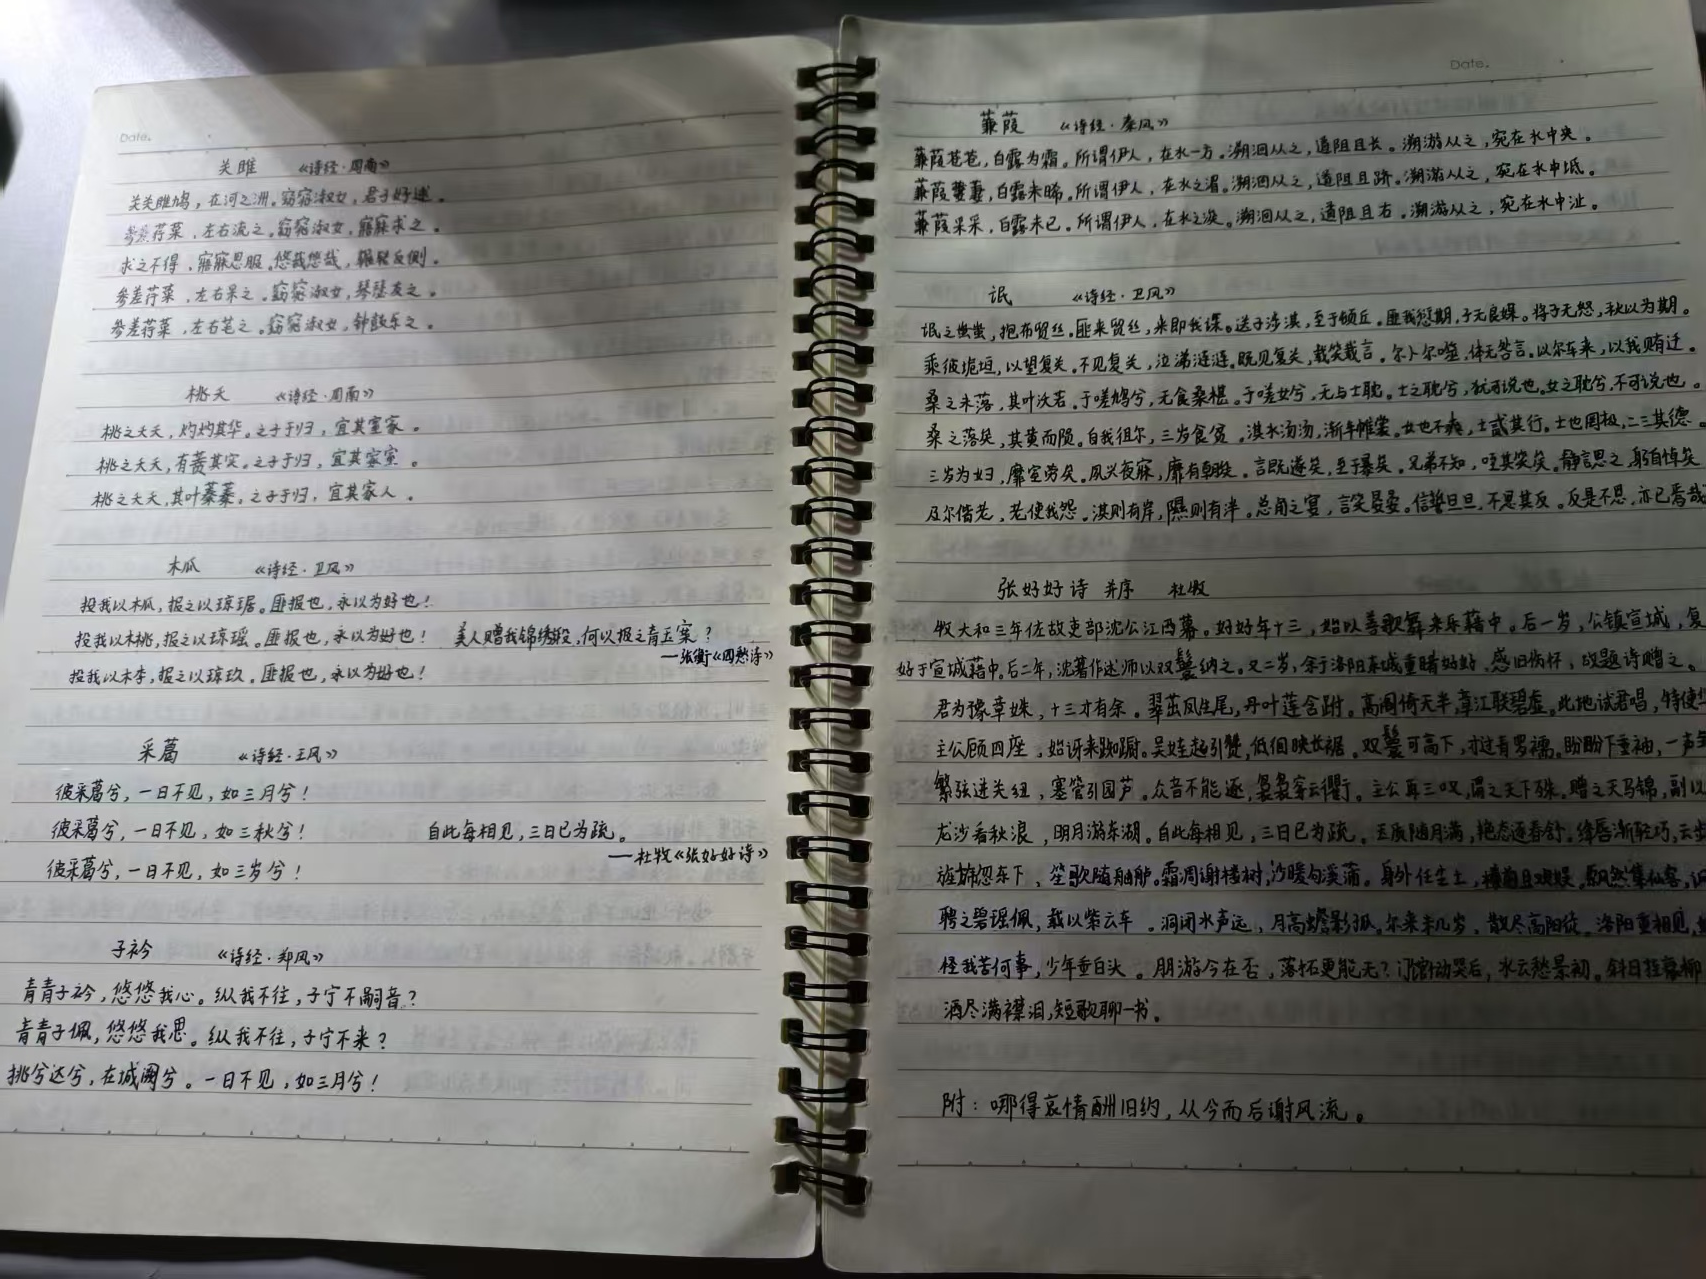 Date.
关雎 《诗经·周南》
关关雎鸠，在河之洲。窈窕淑女，君子好逑。
参差荇菜，左右流之。窈窕淑女，寤寐求之。
求之不得，寤寐思服。悠哉悠哉，辗转反侧。
参差荇菜，左右采之。窈窕淑女，琴瑟友之。
参差荇菜，左右芼之。窈窕淑女，钟鼓乐之。
桃夭 《诗经·周南》
桃之夭夭，灼灼其华。之子于归，宜其室家。
桃之夭夭，有蕡其实。之子于归，宜其家室。
桃之夭夭，其叶蓁蓁。之子于归，宜其家人。
木瓜 《诗经·卫风》
投我以木瓜，报之以琼琚。匪报也，永以为好也！
投我以木桃，报之以琼瑶。匪报也，永以为好也！ 美人赠我锦绣段，何以报之青玉案？
——张衡《四愁诗》
投我以木李，报之以琼玖。匪报也，永以为好也！
采葛 《诗经·王风》
彼采葛兮，一日不见，如三月兮！
彼采葛兮，一日不见，如三秋兮！ 自此每相见，三日已为疏。
——杜牧《张好好诗》
彼采葛兮，一日不见，如三岁兮！
子衿 《诗经·郑风》
青青子衿，悠悠我心。纵我不往，子宁不嗣音？
青青子佩，悠悠我思。纵我不往，子宁不来？
挑兮达兮，在城阙兮。一日不见，如三月兮！
Date.
蒹葭 《诗经·秦风》
蒹葭苍苍，白露为霜。所谓伊人，在水一方。溯洄从之，道阻且长。溯游从之，宛在水中央。
蒹葭萋萋，白露未晞。所谓伊人，在水之湄。溯洄从之，道阻且跻。溯游从之，宛在水中坻。
蒹葭采采，白露未已。所谓伊人，在水之涘。溯洄从之，道阻且右。溯游从之，宛在水中沚。
氓 《诗经·卫风》
氓之蚩蚩，抱布贸丝。匪来贸丝，来即我谋。送子涉淇，至于顿丘。匪我愆期，子无良媒。将子无怒，秋以为期。
乘彼垝垣，以望复关。不见复关，泣涕涟涟。既见复关，载笑载言。尔卜尔噬，体无咎言。以尔车来，以我贿迁。
桑之未落，其叶沃若。于嗟鸠兮，无食桑椹。于嗟女兮，无与士耽。士之耽兮，犹可说也。女之耽兮，不可说也。
桑之落矣，其黄而陨。自我徂尔，三岁食贫。淇水汤汤，渐车帷裳。女也不爽，士贰其行。士也罔极，二三其德。
三岁为妇，靡室劳矣。夙兴夜寐，靡有朝矣。言既遂矣，至于暴矣。兄弟不知，咥其笑矣。静言思之，躬自悼矣
及尔偕老，老使我怨。淇则有岸，隰则有泮。总角之宴，言笑晏晏。信誓旦旦，不思其反。反是不思，亦已焉哉
张好好诗 并序 杜牧
牧大和三年佐故吏部沈公江西幕。好好年十三，始以善歌舞来乐藉中。后一岁，公镇宣城，复
好于宣城藉中。后二年，沈著作述师以双鬟纳之。又二岁，余于洛阳东城重睹好好，感旧伤怀，故题诗赠之。
君为豫章姝，十三才有余。翠茁凤生尾，丹叶莲含跗。高阁倚天半，章江联碧虚。此地试君唱，特使华
主公顾四座，始讶来踟蹰。吴娃起引赞，低徊映长裾。双鬟可高下，才过青罗襦。盼盼下垂袖，一声
繁弦迸关纽，塞管引圆芦。众音不能逐，袅袅穿云衢。主公再三叹，谓之天下殊。赠之天马锦，副以
龙沙看秋浪，明月游东湖。自此每相见，三日已为疏。玉质随月满，艳态逐春舒。绛唇渐轻巧，云步
旌旆忽东下，笙歌随舳舻。霜凋谢楼树，沙暖句溪蒲。身外任尘土，樽前且欢娱。飘然集仙客，
聘之碧瑶佩，载以紫云车。洞闭水声远，月高蟾影孤。尔来未几岁，散尽高阳徒。洛阳重相见，
怪我苦何事，少年垂白头。朋游今在否，落拓更能无？门馆恸哭后，水云愁景初。斜日挂衰柳
洒尽满襟泪，短歌聊一书。
附：哪得哀情酬旧约，从今而后谢风流。